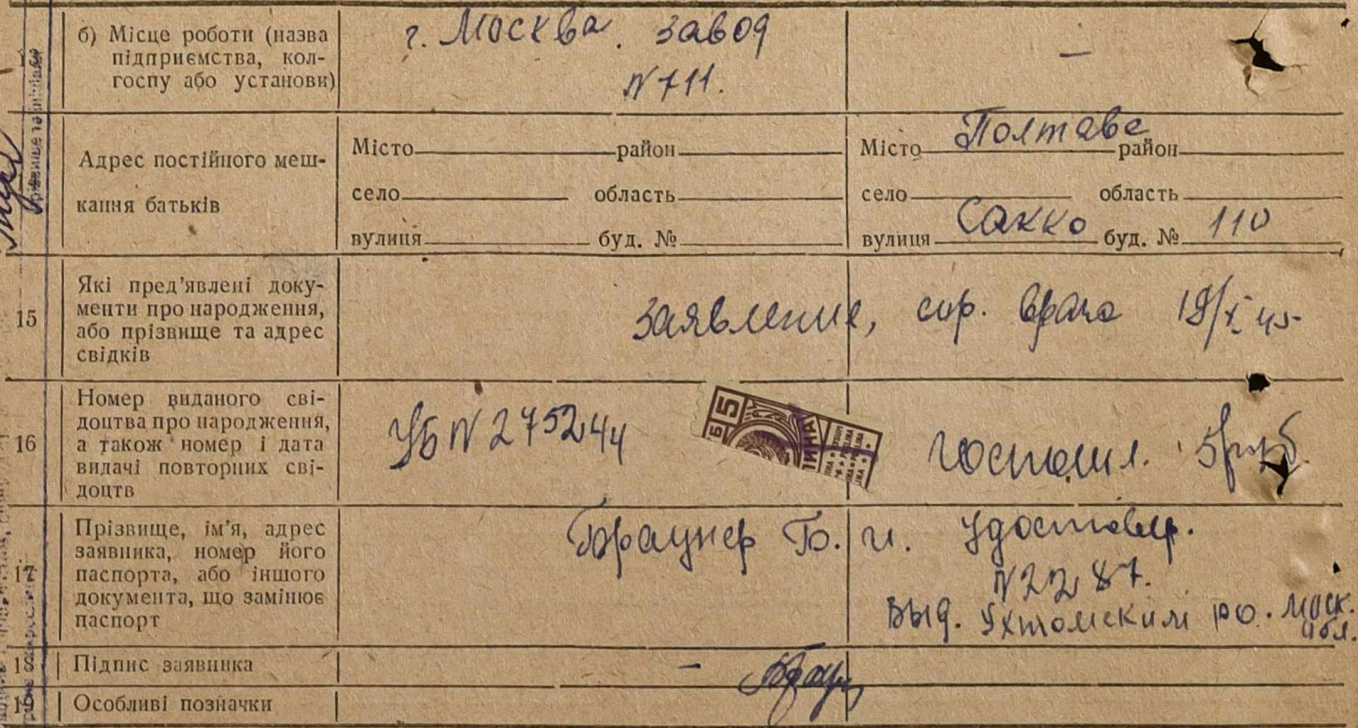 б) Місце роботи (назва
підприємства, кол-
госпу або установи)
г. Москва. завод
№711.
—
Адрес постійного меш-
кання батьків
Місто район
село область
вулиця буд. №
Місто Полтава район
село область
вулиця Сакко буд. № 110
15
Які пред’явлені доку-
менти про народження,
або прізвище та адрес
свідків
заявление, спр. врача 19/X 45
16
Номер виданого сві-
доцтва про народження,
а також номер і дата
видачі повторних сві-
доцтв
УБ №275244
5
госпошл. 5 руб.
17
Прізвище, ім’я, адрес
заявника, номер його
паспорта, або іншого
документа, що замінює
паспорт
Браунер Б. И. Удостовер.
№2287.
Выд. Ухтомским РО. Моск.
обл.
18
Підпис заявника
–
19
Особливі позначки